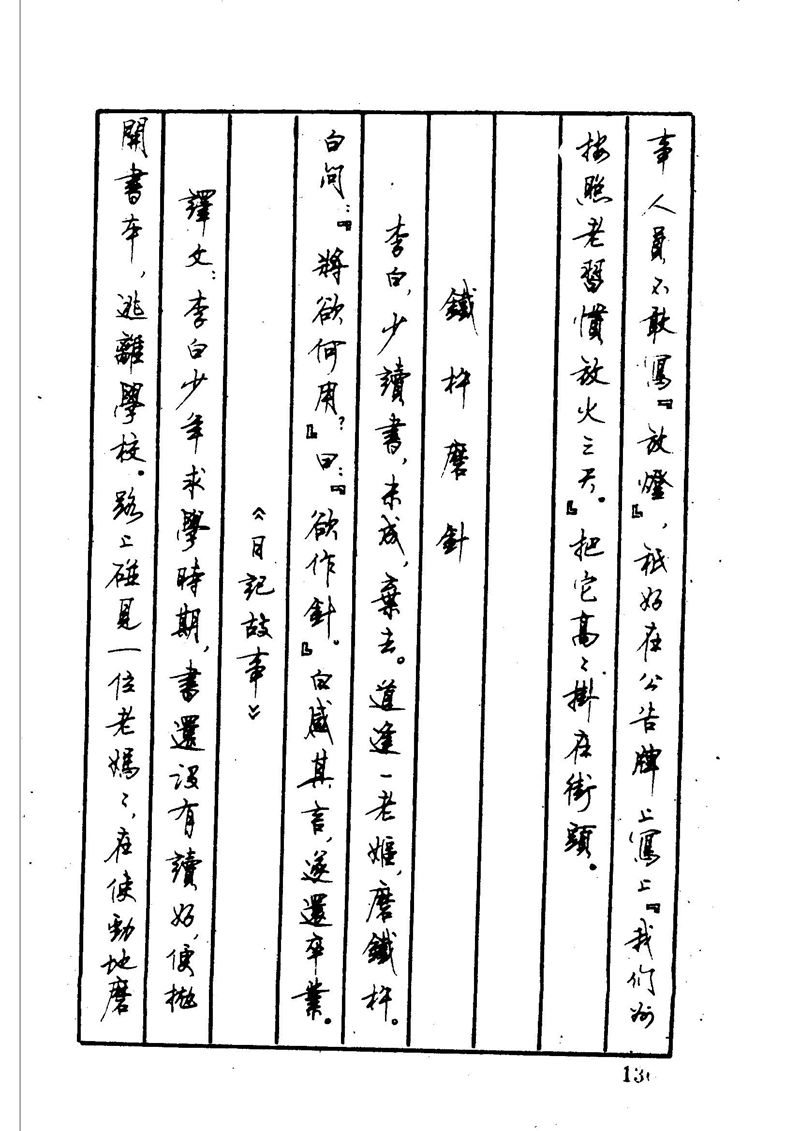 事人員不敢寫『放燈』，祗好在公告牌上寫上『我们州
按照老習慣放火三天。』把它高〻掛在街頭。
鐵杵磨針
李白，少讀書，未成，棄去。道逢一老嫗，磨鐵杵。
白问：『將欲何用？』曰：『欲作針。』白感其言，遂還卒業。
《日記故事》
譯文：李白少年求學時期，書還没有讀好，便拋
開書本，逃離學校。路上碰見一位老媽〻，在使勁地磨
131